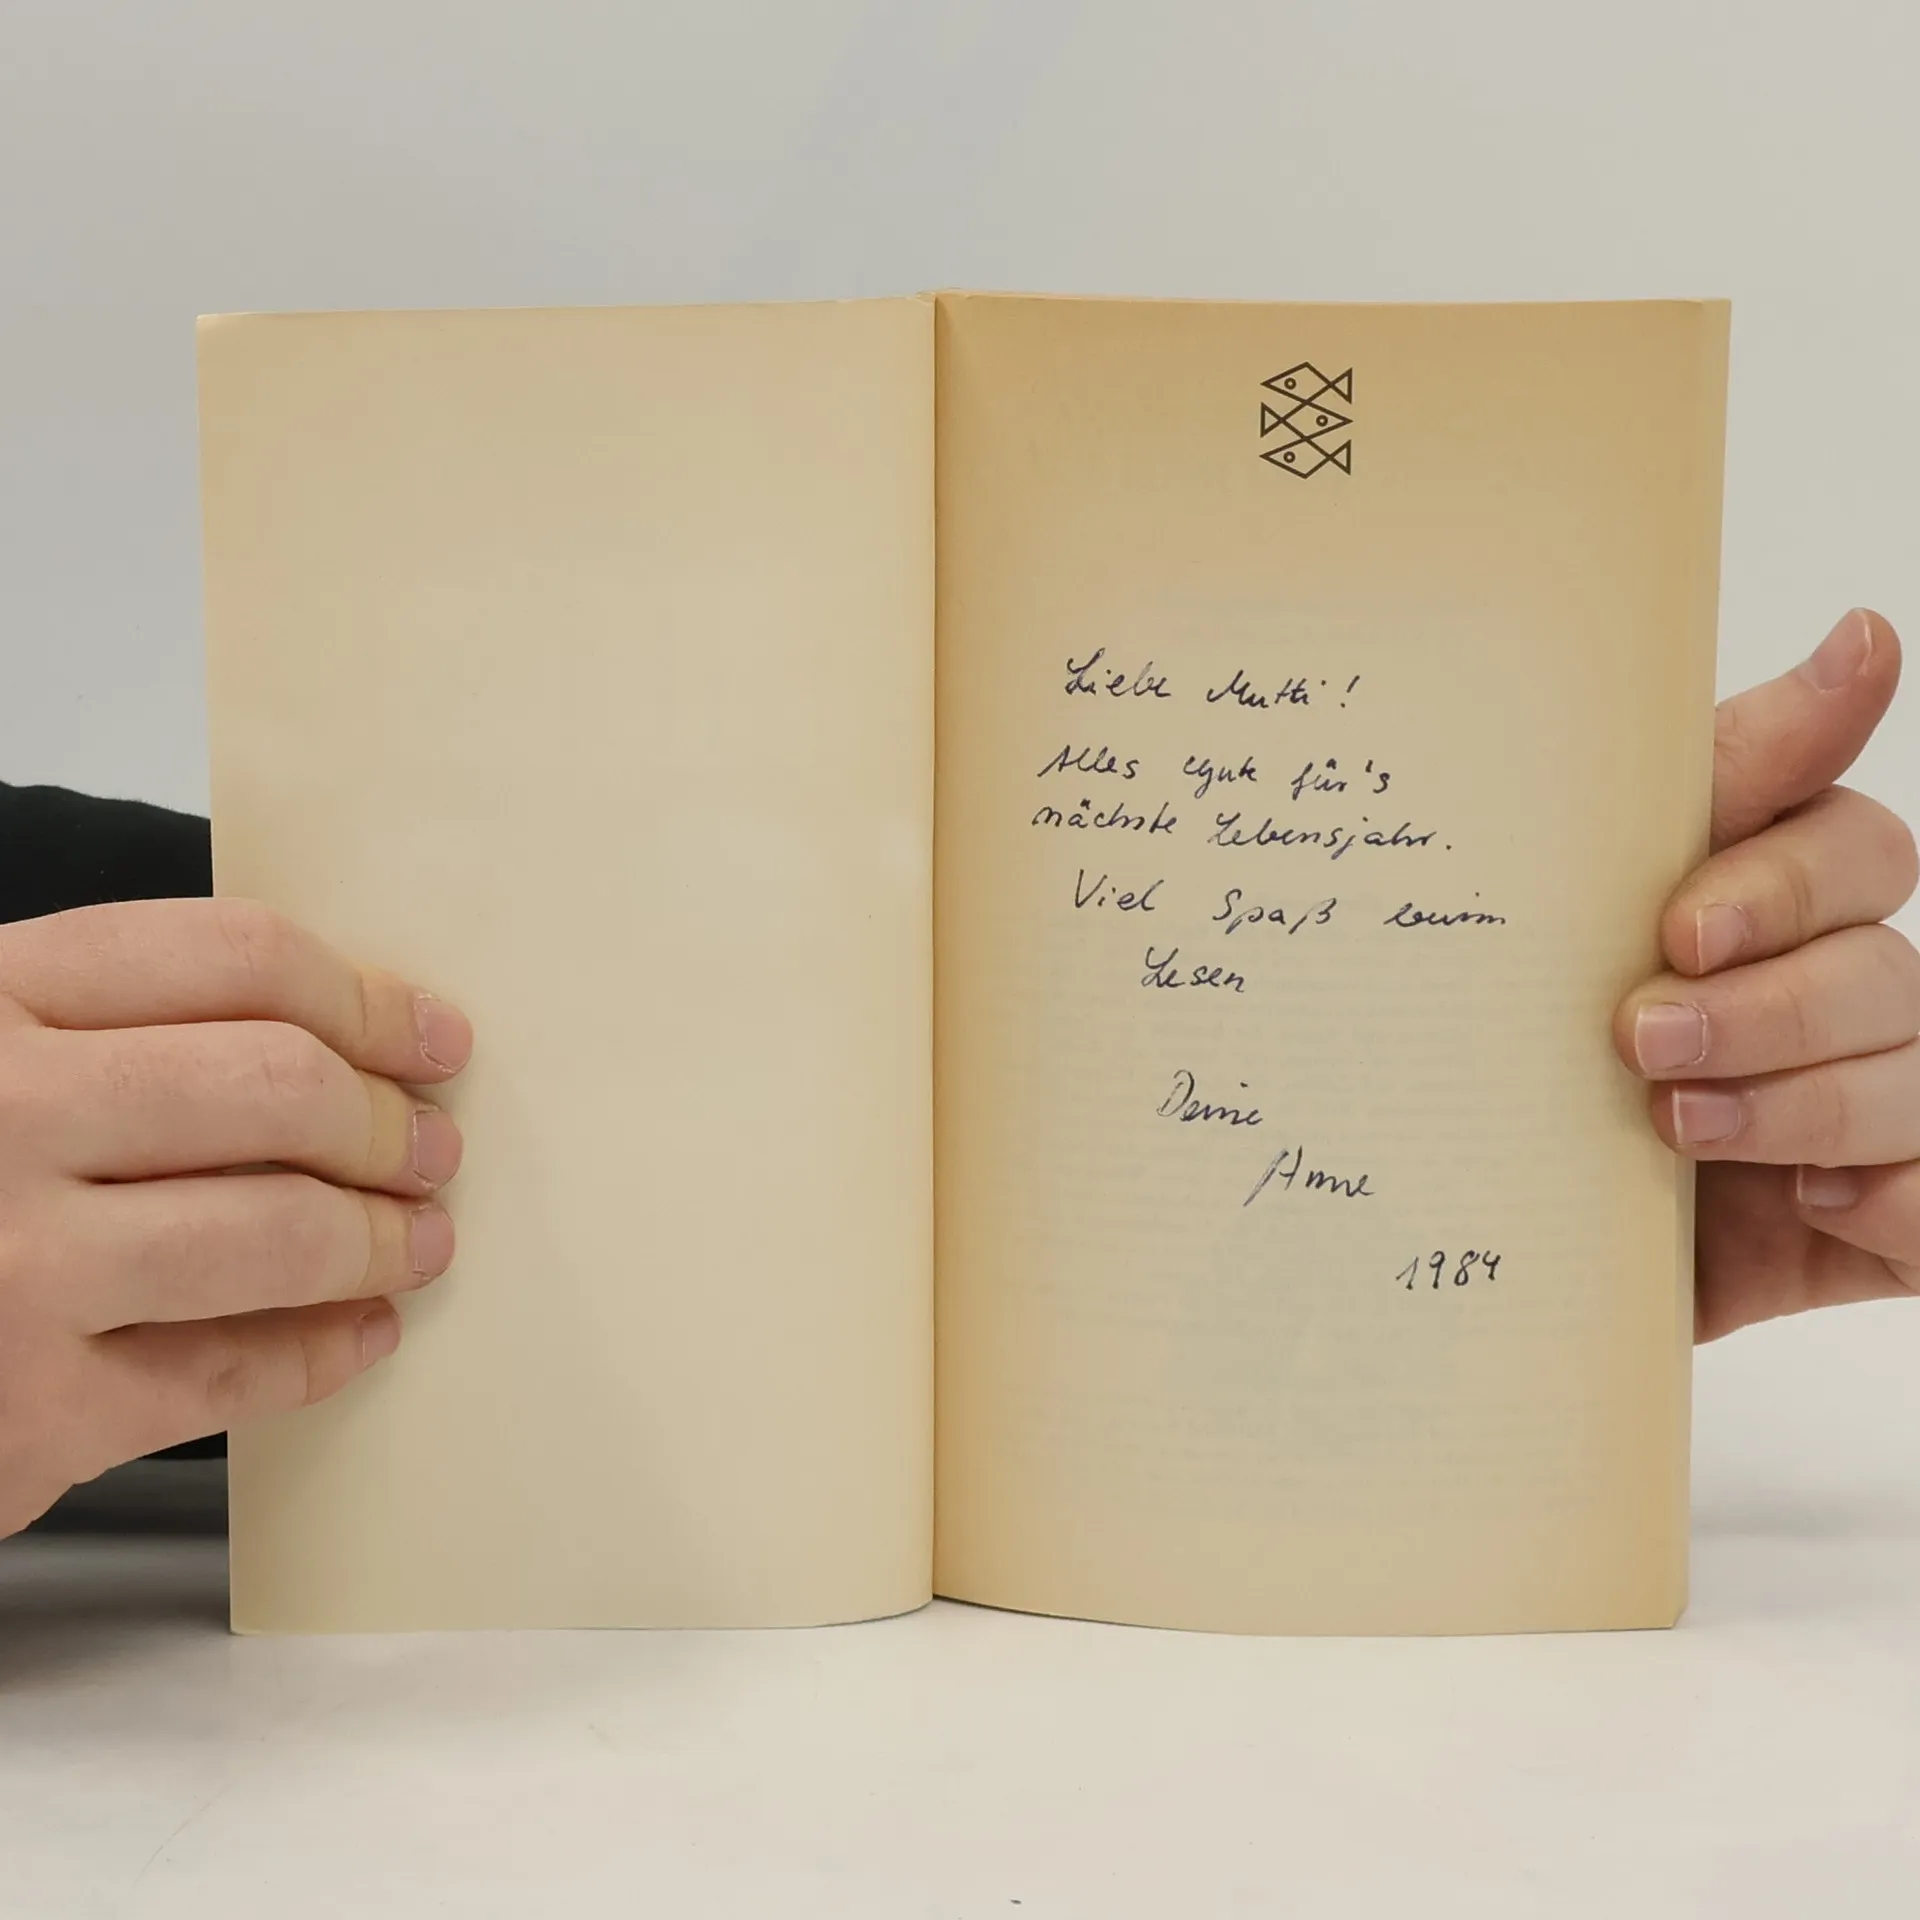 Liebe Mutti!
Alles Gute für's
nächste Lebensjahr.
Viel Spaß beim
Lesen
Deine
Anne
1984